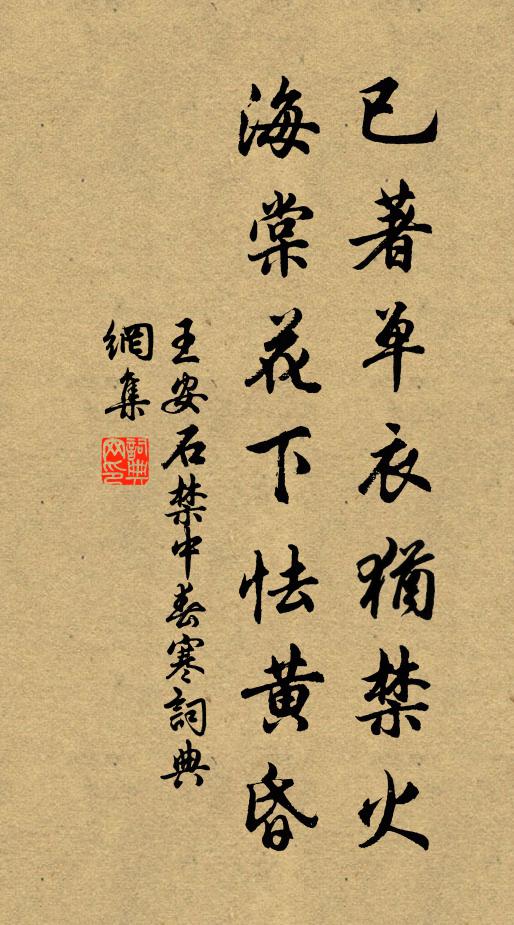 已著单衣犹禁火
海棠花下怯黄昏
王安石禁中春寒詞典
網集
詞典
网印